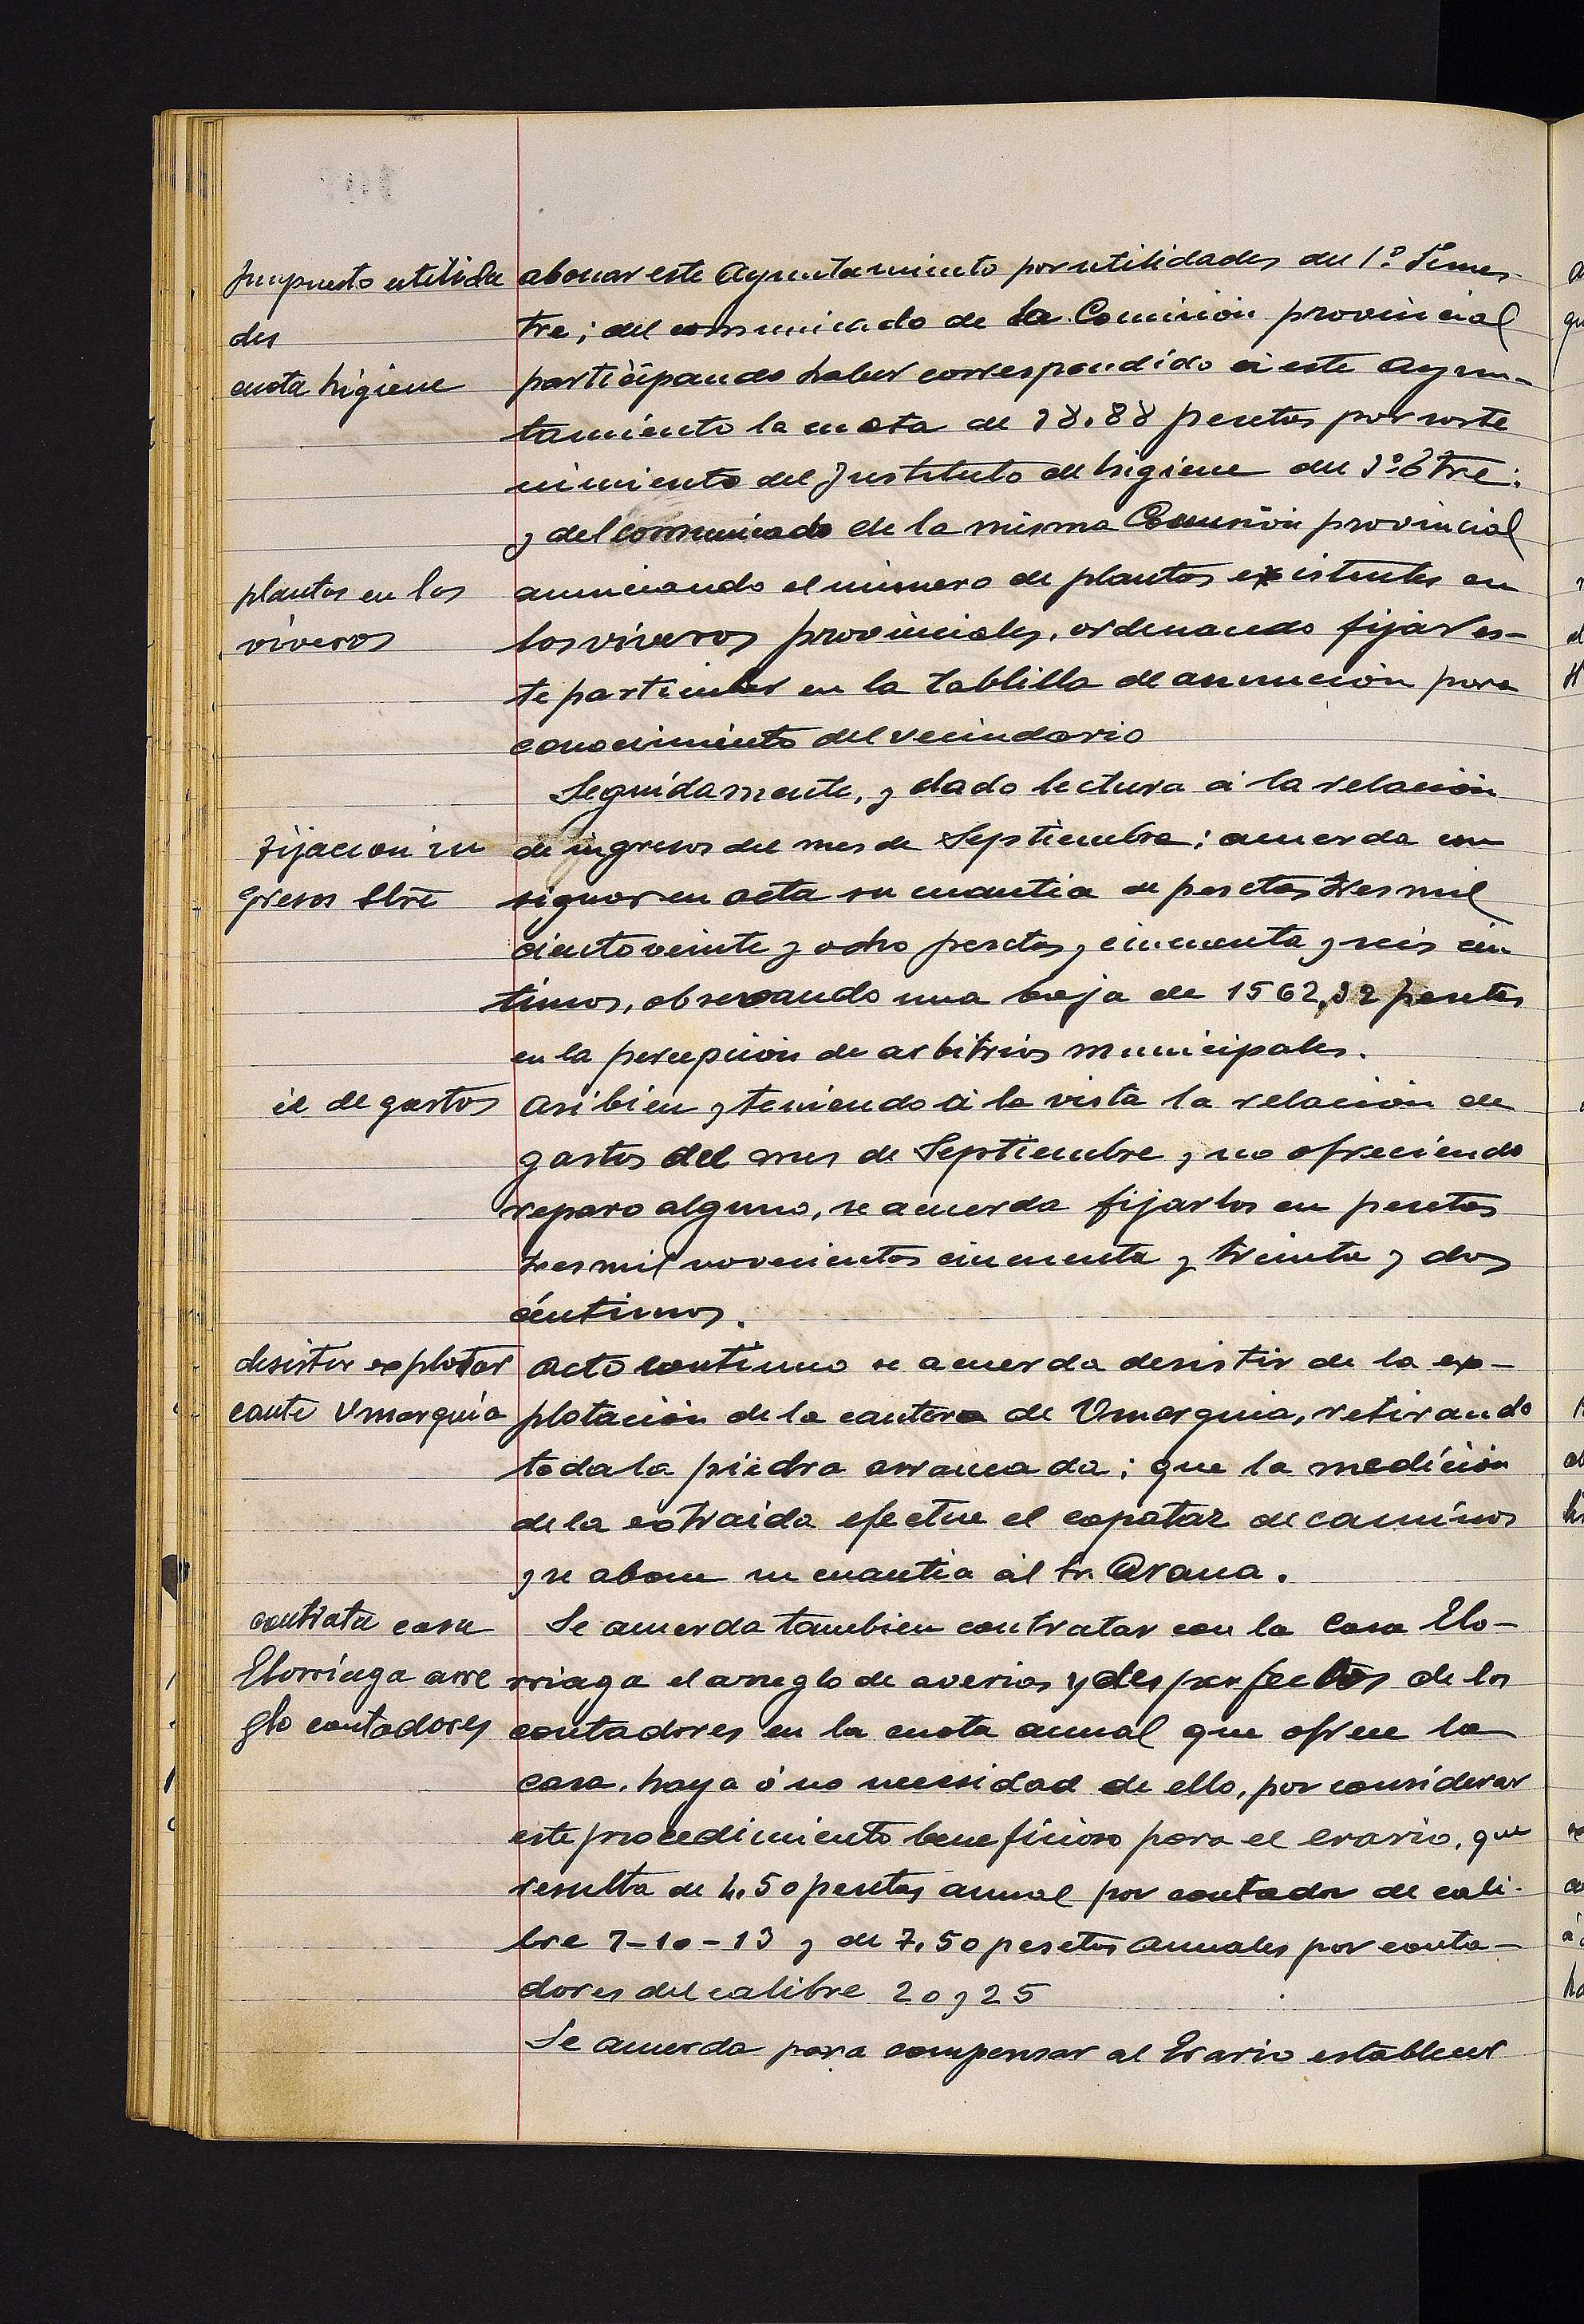 Impuesto utilida
des
cuota higiene
abonar este Ayuntamiento por utilidades del 1º Semes-
tre; del comunicado de la Comisión provincial
participando haber correspondido á este Ayun-
tamiento la cuota de 38.88 pesetas por soste
nimiento del Instituto de higiene del 3º 6tre:
y del comunicado de la misma Comisión provincial
plantas en los
viveros
anunciando el número de plantas existentes en
los viveros provinciales, ordenando fijar es-
te particular en la tablilla de anuncion para
conocimiento del vecindario
Seguidamente, y dado lectura á la relación
fijacion in
gresos Sbre
de ingresos del mes de Septiembre; acuerda con
signar en acta su cuantia de pesetas tres mil
ciento veinte y ocho pesetas, cincuenta y seis cén
timos, observando una baja de 1562,32 pesetas
en la percepción de arbitrios municipales.
id de gastos
Asibien y teniendo á la vista la relación de
gastos del mes de Septiembre y no ofreciendo
reparo alguno, se acuerda fijarlos en pesetas
tres mil novecientos cincuenta y treinta y dos
céntimos.
desistir explotar
cante Umarquia
Acto continuo se acuerda desistir de la ex-
plotación de la cantera de Umarquia, retirando
toda la piedra arrancada; que la medición
de la extraida efectue el capataz de caminos
y se abone su cuantia al Sr. Arana.
contrata casa
Elorriaga arre
glo contadores
Se acuerda tambien contratar con la Casa Elo-
rriaga el arreglo de averias y desperfectos de los
contadores en la cuota anual que ofrece la
casa, haya ó no necesidad de ello, por considerar
este procedimiento beneficioso para el erario, que
resulta de 4,50 pesetas anual por contador de cali-
bre 7-10-13 y de 7,50 pesetas anuales por conta-
dores del calibre 20 y 25
Se acuerda para compensar al Erario establecer